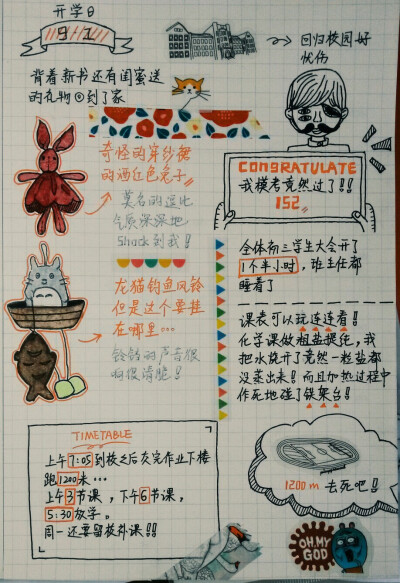 开学日
9 1
回归校园好
忧伤
背着新书还有闺蜜送
的礼物回到了家
奇怪的穿纱裙
的酒红色兔子
莫名的進化
气质深深地
Shock到我！
CONGRATULATE
我模考竟然过了!!
152
全体初三学生大会开了
1个半小时，班主任都
睡着了
龙猫钓鱼风铃
但是这个要挂
在哪里…
铃铛的声音很
响很清脆！
课表可以玩连连看！
化学课做粗盐提纯，我
把水烧开了竟然一粒盐都
没蒸出来！而且加热过程中
作死地碰了铁架台！
TIMETABLE
上午7:05到校之后交完作业下楼
跑1200米…
上午3节课，下午6节课，
5:30放学。
周一还要留校补课!!
1200m 去死吧!!
OH.MY
GOD